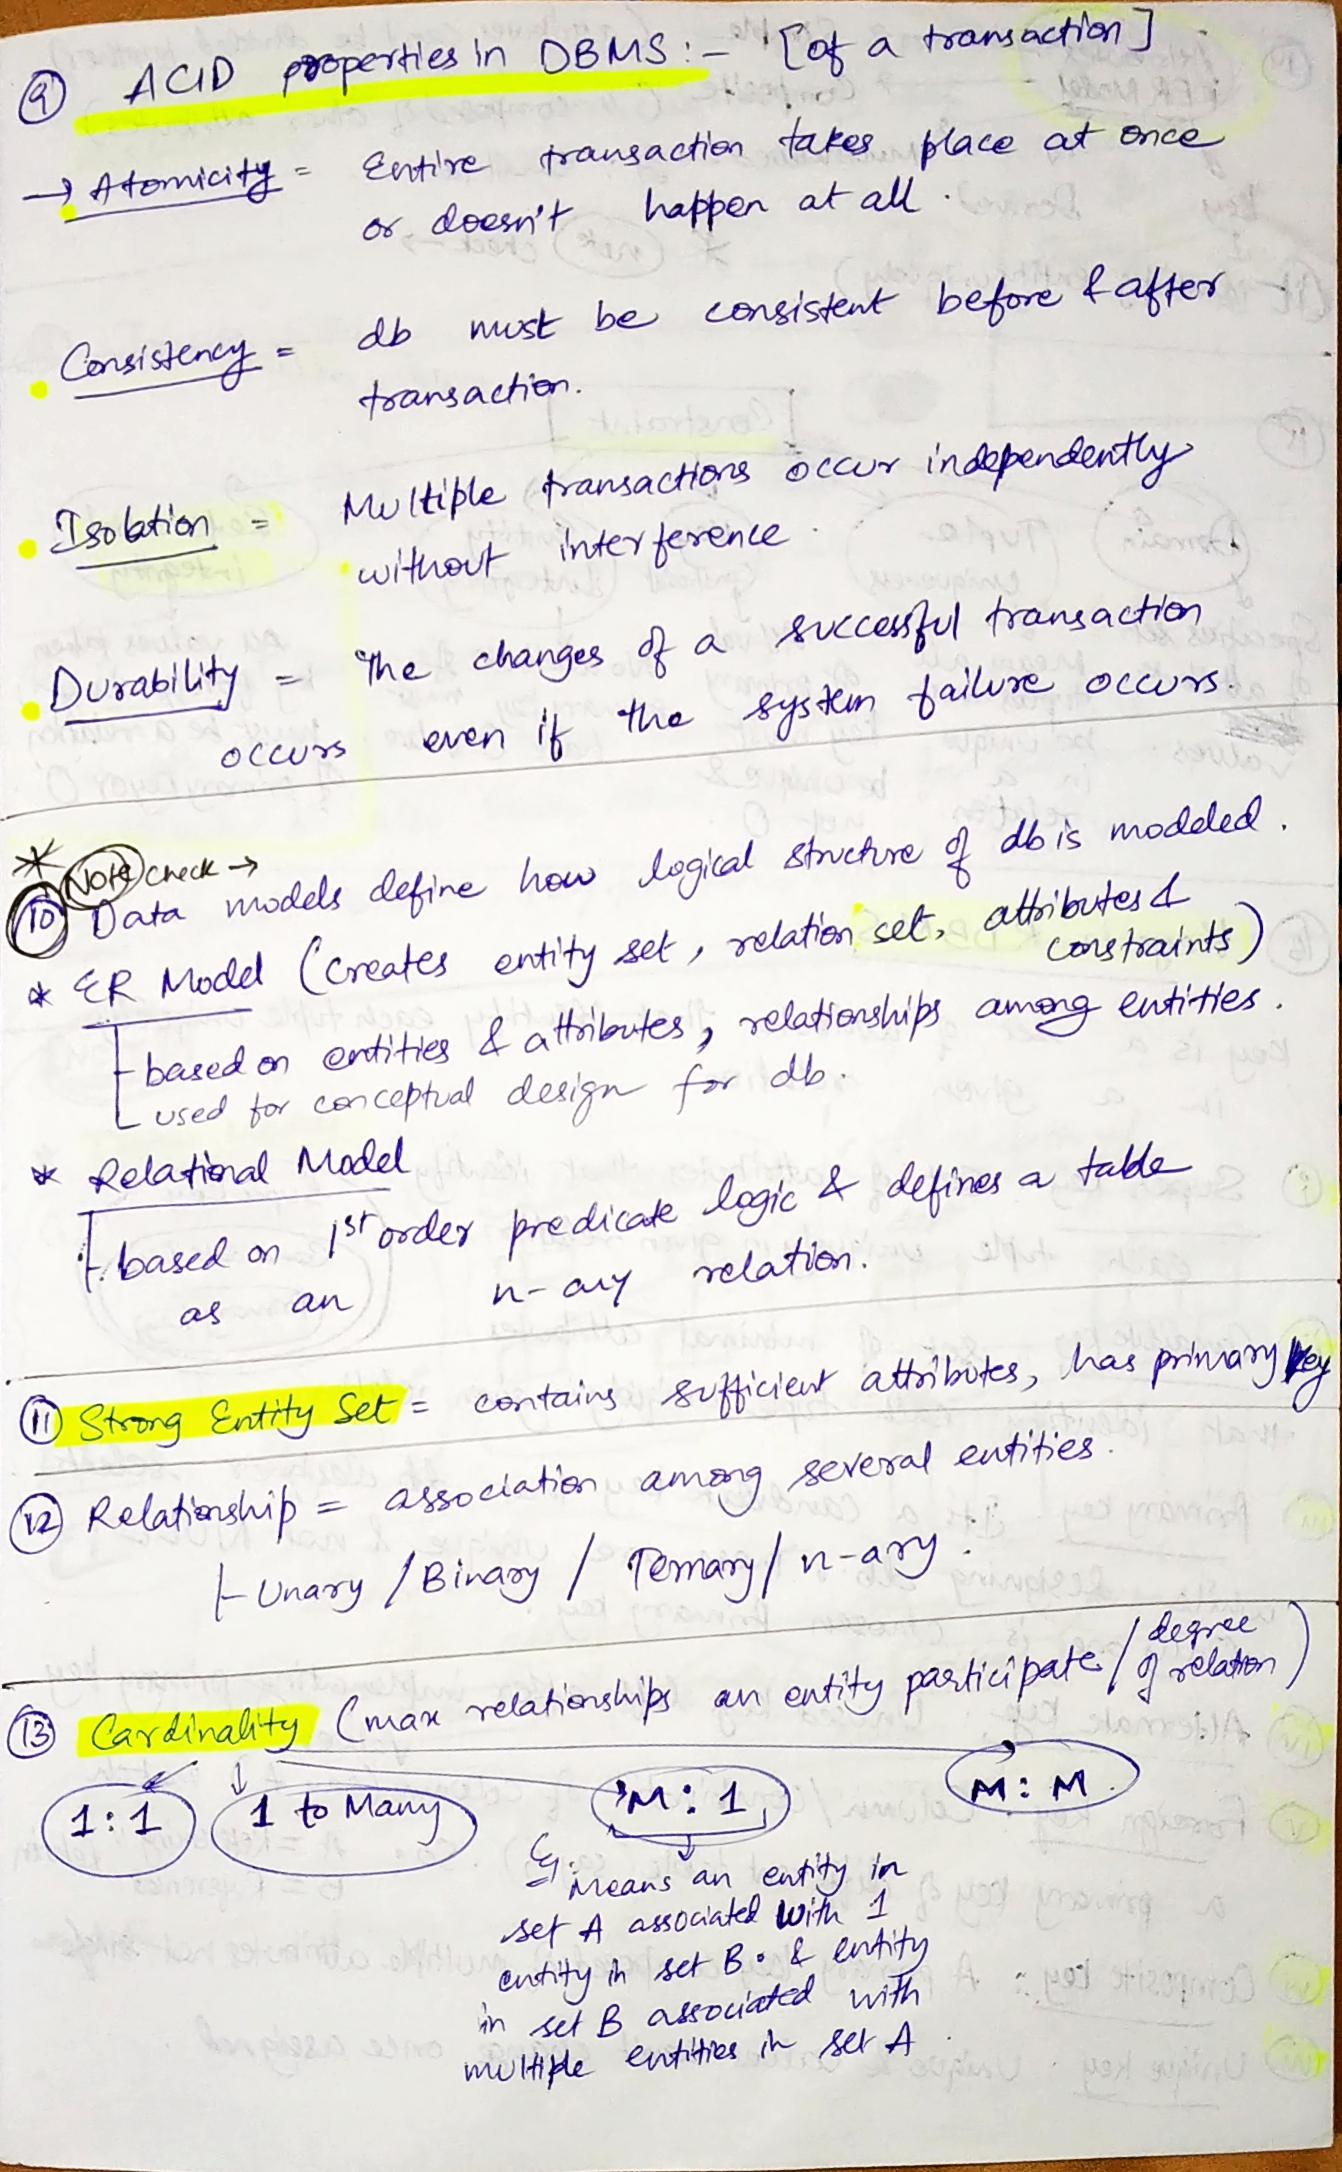 9 ACID properties in DBMS :- [of a transaction]
→ Atomicity = Entire transaction takes place at once
or doesn't happen at all.
Consistency = db must be consistent before & after
transaction.
Isolation = Multiple transactions occur independently
without interference.
Durability = The changes of a successful transaction
occurs even if the system failure occurs.
* Note check →
10 Data models define how logical structure of db is modeled.
* ER Model (Creates entity set, relation set, attributes &
constraints)
based on entities & attributes, relationships among entities.
used for conceptual design for db.
* Relational Model
based on 1st order predicate logic & defines a table
as an n-ary relation.
11 Strong Entity Set = contains sufficient attributes, has primary key
12 Relationship = association among several entities.
Unary / Binary / Ternary / n-ary.
13 Cardinality (max relationships an entity participate / degree
of relation)
1:1 1 to Many M:1 M:M
Eg:
Means an entity in
set A associated with 1
entity in set B. & entity
in set B associated with
multiple entities in set A.